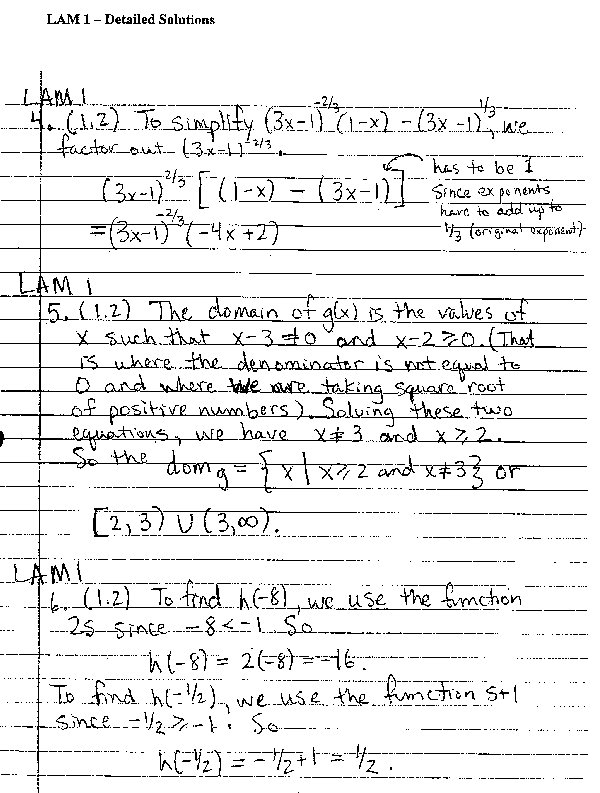 LAM 1 – Detailed Solutions
LAM 1
4. (1.2) To simplify (3x-1)^(-2/3) (1-x) - (3x-1)^(1/3), we
factor out (3x-1)^(-2/3).
(3x-1)^(-2/3) [(1-x) - (3x-1)]
has to be 1
since exponents
have to add up to
1/3 (original exponent)
= (3x-1)^(-2/3) (-4x+2)
LAM 1
5. (1.2) The domain of g(x) is the values of
x such that x-3≠0 and x-2≥0. (That
is where the denominator is not equal to
0 and where we are taking square root
of positive numbers). Solving these two
equations, we have x≠3 and x≥2.
So the dom g = {x | x≥2 and x≠3} or
[2,3) ∪ (3,∞).
LAM 1
6. (1.2) To find h(-8), we use the function
2s since -8<-1. So
h(-8) = 2(-8) = -16.
To find h(-1/2), we use the function s+1
since -1/2 ≥ -1. So
h(-1/2) = -1/2 + 1 = 1/2.